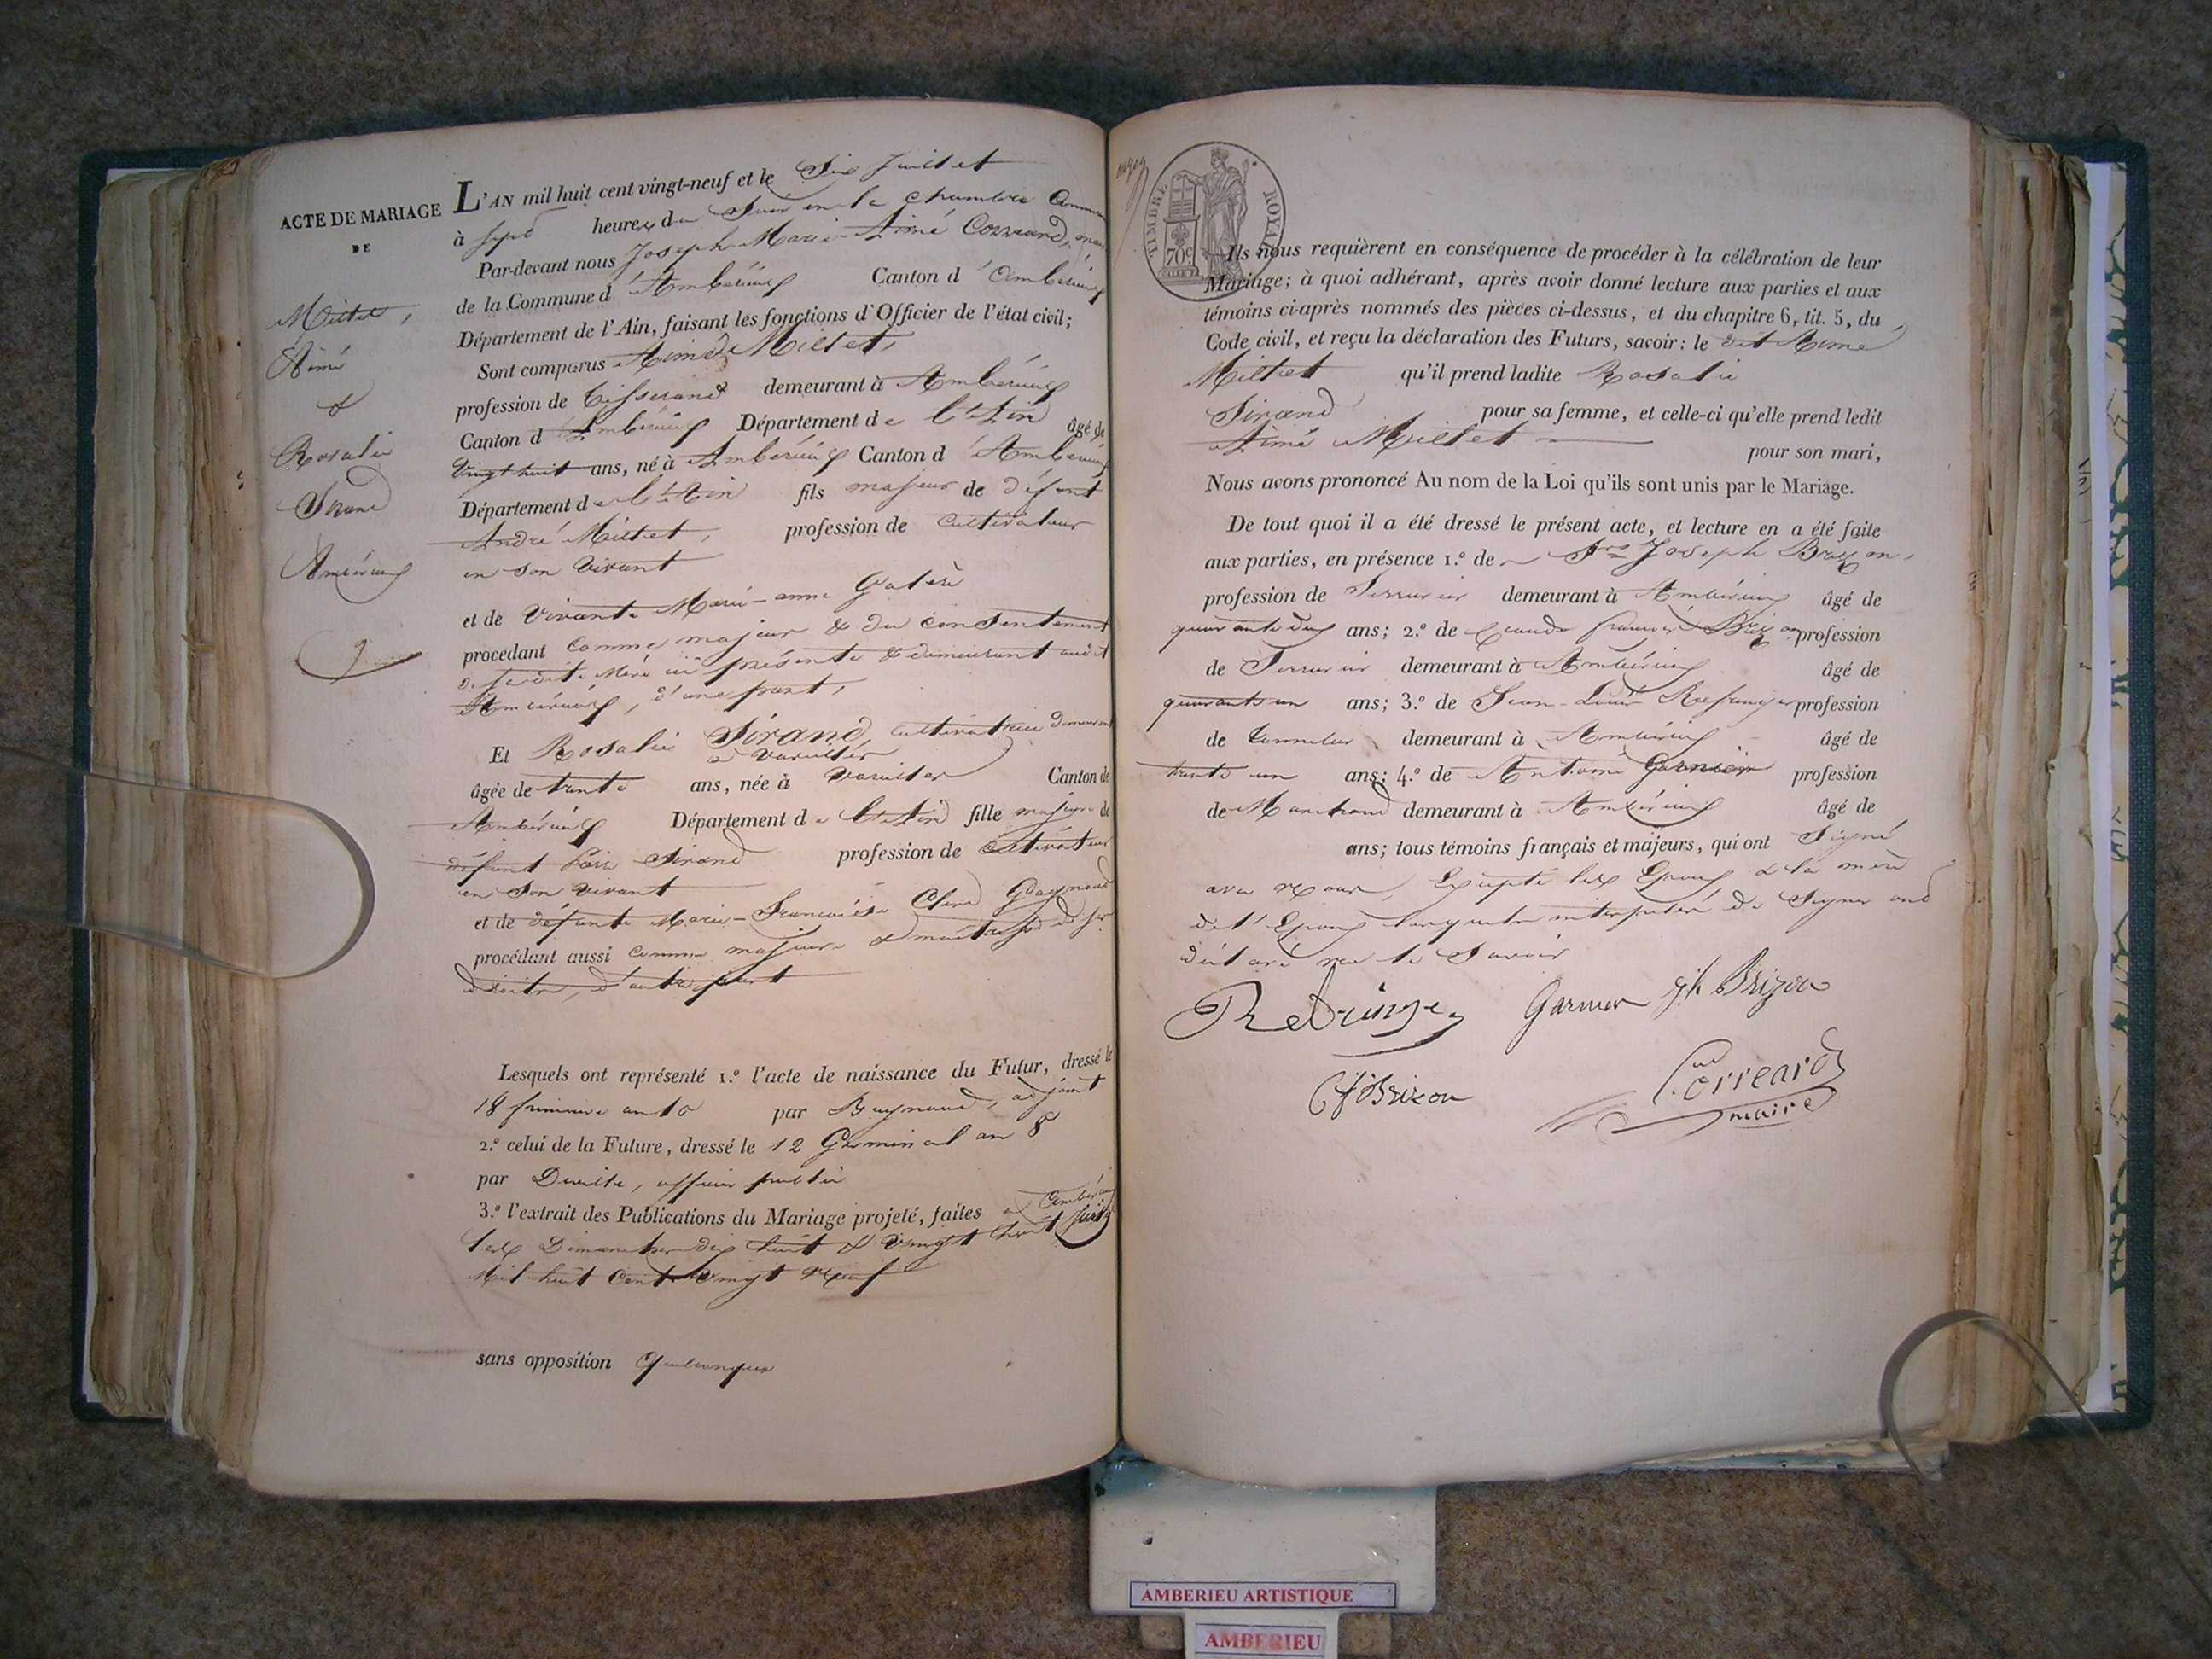 ACTE DE MARIAGE
DE
Millet,
Aimé
&
Rosalie
Sirand
Ambérieux
9
L'AN mil huit cent vingt-neuf et le Six Juillet
à sept heures du Soir en la chambre
Par-devant nous Joseph Marie Aimé Corréard, maire
de la Commune d'Ambérieux Canton d'Ambérieux
Département de l'Ain, faisant les fonctions d'Officier de l'état civil;
Sont comparus Aimé Millet,
profession de tisserand demeurant à Ambérieux
Canton d'Ambérieux Département de l'Ain âgé de
Vingt huit ans, né à Ambérieux Canton d'Ambérieux
Département de l'Ain fils majeur de défunt
André Millet, profession de Cultivateur
en son vivant
et de vivante Marie-anne
procedant Comme majeur & du Consentement
de sadite Mère ici présente & demeurant audit
Ambérieux, d'une part,
Et Rosalie Sirand, cultivatrice demeurant
à Vareilles
âgée de trente ans, née à Vareilles Canton de
Ambérieux Département de l'Ain fille majeure de
défunt Sirand profession de Cultivateur
en Son vivant
et de défunte Marie-Françoise
procédant aussi Comme majeure & maîtresse de ses
droits, d'autre part
Lesquels ont représenté 1.º l'acte de naissance du Futur, dressé le
18 frimaire an 10 par adjoint
2.º celui de la Future, dressé le 12 Germinal an 8
par officier public
3.º l'extrait des Publications du Mariage projeté, faites à Ambérieux
les Dimanches huit & Vingt huit juin
Mil huit Cent Vingt Neuf
sans opposition Quelconque
TIMBRE ROYAL
70c
Ils nous requièrent en conséquence de procéder à la célébration de leur
Mariage; à quoi adhérant, après avoir donné lecture aux parties et aux
témoins ci-après nommés des pièces ci-dessus, et du chapitre 6, tit. 5, du
Code civil, et reçu la déclaration des Futurs, savoir: le dit Aimé
Millet qu'il prend ladite Rosalie
Sirand pour sa femme, et celle-ci qu'elle prend ledit
Aimé Millet pour son mari,
Nous avons prononcé Au nom de la Loi qu'ils sont unis par le Mariage.
De tout quoi il a été dressé le présent acte, et lecture en a été faite
aux parties, en présence 1.º de Joseph Brizon,
profession de Serrurier demeurant à Ambérieux âgé de
quarante ans; 2.º de Claude françois Brizon profession
de Serrurier demeurant à Ambérieux âgé de
quarante un ans; 3.º de Jean-Louis profession
de demeurant à Ambérieux âgé de
trente un ans; 4.º de Antoine Garnier profession
de Marchand demeurant à Ambérieux âgé de
ans; tous témoins français et majeurs, qui ont Signé
avec nous, Excepté les Epoux & la mère
de l'Epoux lesquels de Signer ont
déclaré ne le Savoir
Garnier jh Brizon
Cf Brizon
Corréard
maire
AMBERIEU ARTISTIQUE
AMBERIEU